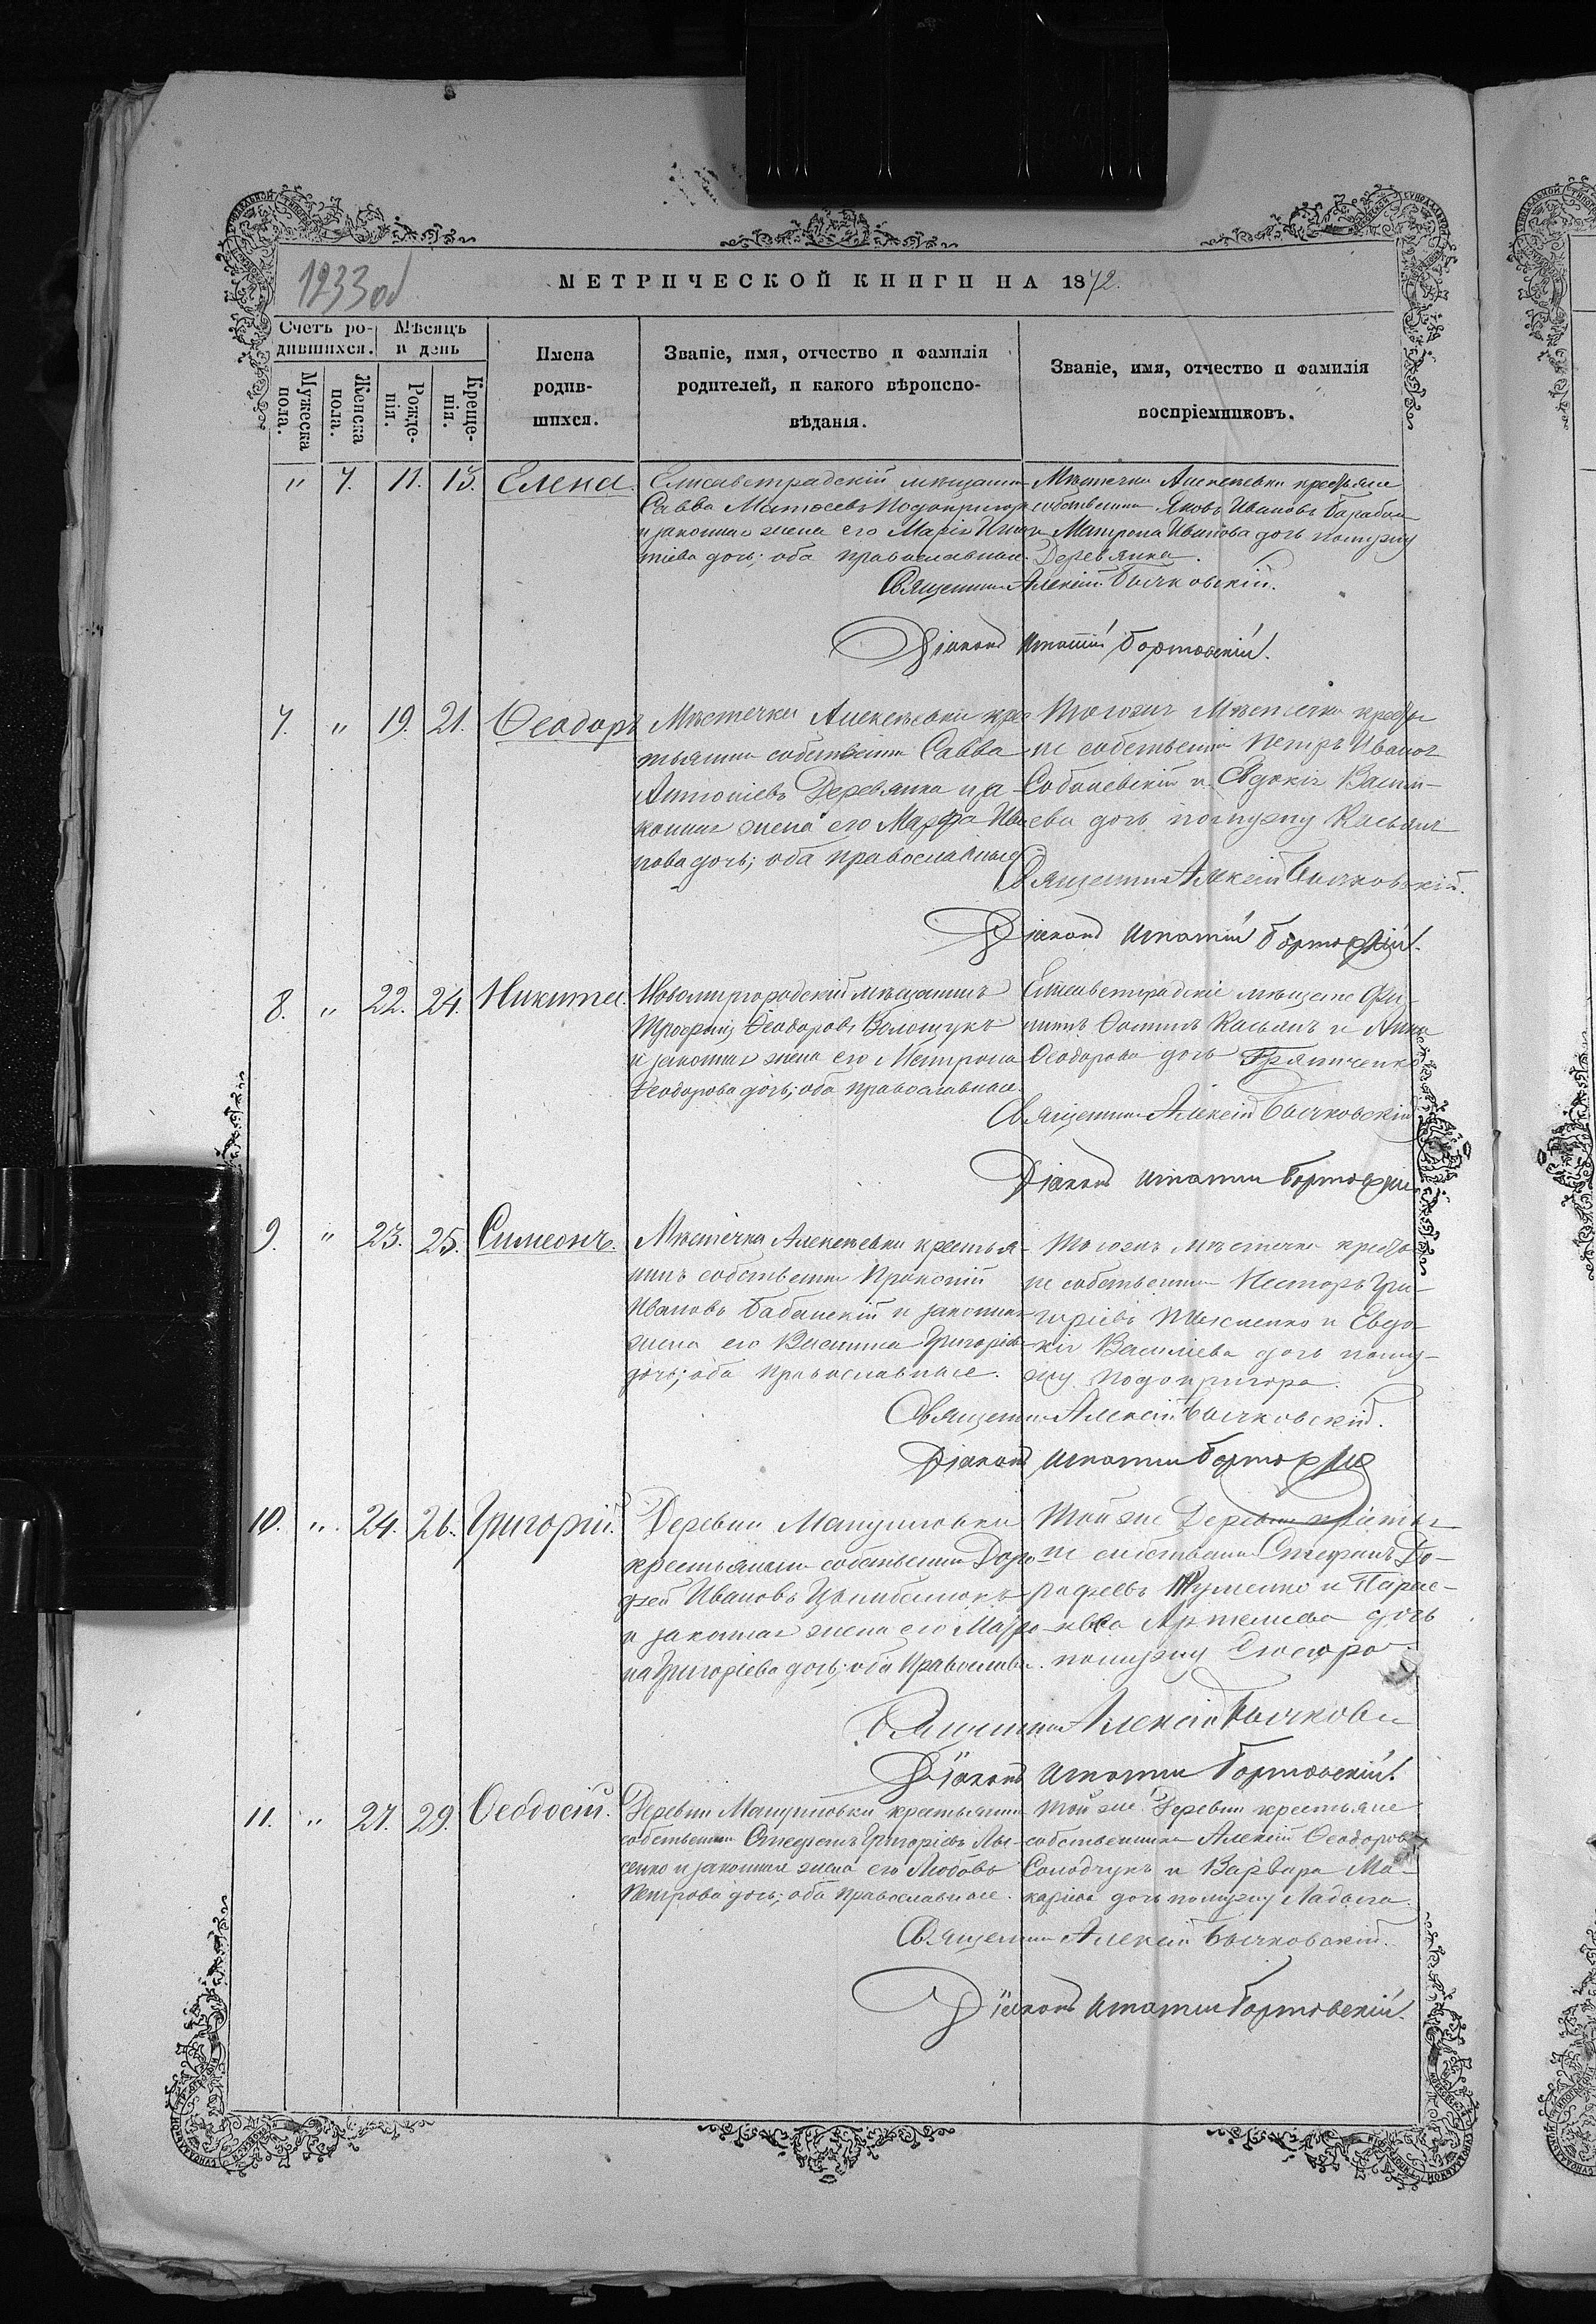 1233 об
МЕТРИЧЕСКОЙ КНИГИ НА 1872.
Счетъ ро-
дившихся.
Мѣсяцъ
и день
Мужеска
пола.
Женска
пола.
Рожде-
нія.
Креще-
нія.
Имена
родив-
шихся.
Званіе, имя, отчество и фамилія
родителей, и какого вѣроиспо-
вѣданія.
Званіе, имя, отчество и фамилія
воспріемниковъ.
" 7. 11. 13. Елена.
Елисаветградскій мѣщанин
Савва Матѳеевъ Подопригор
и законная жена его Марія Игна
тіева дочь; оба православные.
Мѣстечка Алексѣевки крестьяне
собственники Яковъ Ивановъ Барабаш
и Матрона Иванова дочь помужу
Деревянка.
Священникъ Алексій Бычковскій.
Діаконъ Игнатій Бортовскій.
7. " 19. 21. Ѳеодоръ
Мѣстечка Алексѣевки крес
тьянинъ собственник Савва
Антоніевъ Деревянка и за-
конная жена его Марфа Ива
нова дочь; оба православные
Тогожъ Мѣстечка крестья
не собственники Петръ Иванов
Собаневскій и Евдокія Васил-
ева дочь помужу Касьян
Священникъ Алексій Бычковскій.
Діаконъ Игнатій Бортовскій.
8. " 22. 24. Никита
Новомиргородскій мѣщанинъ
Трофимъ Ѳеодоровъ Волощукъ
и законная жена его Матрона
Ѳеодорова дочь; оба православные.
Елисаветградскіе мѣщане Фи-
липпъ Ѳоминъ Касьянъ и Анна
Ѳеодорова дочь
Священникъ Алексій Бычковскій
Діаконъ Игнатій Бортовскій
9. " 23. 25. Симеонъ.
Мѣстечка Алексѣевки крестья-
нинъ собственник Прокопій
Ивановъ Бабанскій и законная
жена его Василиса Григоріев
дочь; оба православные.
Тогожъ мѣстечка крестья-
не собственники Несторъ Гри-
горіевъ и Евдо-
кія Василіева дочь пому-
жу Подопригора.
Священникъ Алексій Бычковскій.
Діаконъ Игнатій Бортовскій
10. " 24. 26. Григорій.
Деревни Мануиловки
крестьянинъ собственник Доро-
фей Ивановъ Цымбалюкъ
и законная жена его Матро
на Григоріева дочь; оба Православн.
Той же Деревни крестья
не собственники Стефанъ До-
рофеевъ и Парас-
кева Артеміева дочь
помужу
Священникъ Алексій Бычковск
Діаконъ Игнатій Бортовскій.
11. " 27. 29. Ѳеодосій.
Деревни Мануиловки крестьянин
собственник Стефанъ Григоріевъ Лы-
сенко и законная жена его Любовь
Петрова дочь; оба православные.
Той же Деревни крестьяне
собственники Алексій Ѳеодоров
Солодчукъ и Варвара Ма-
каріева дочь помужу Ладыга.
Священникъ Алексій Бычковскій.
Діаконъ Игнатій Бортовскій.